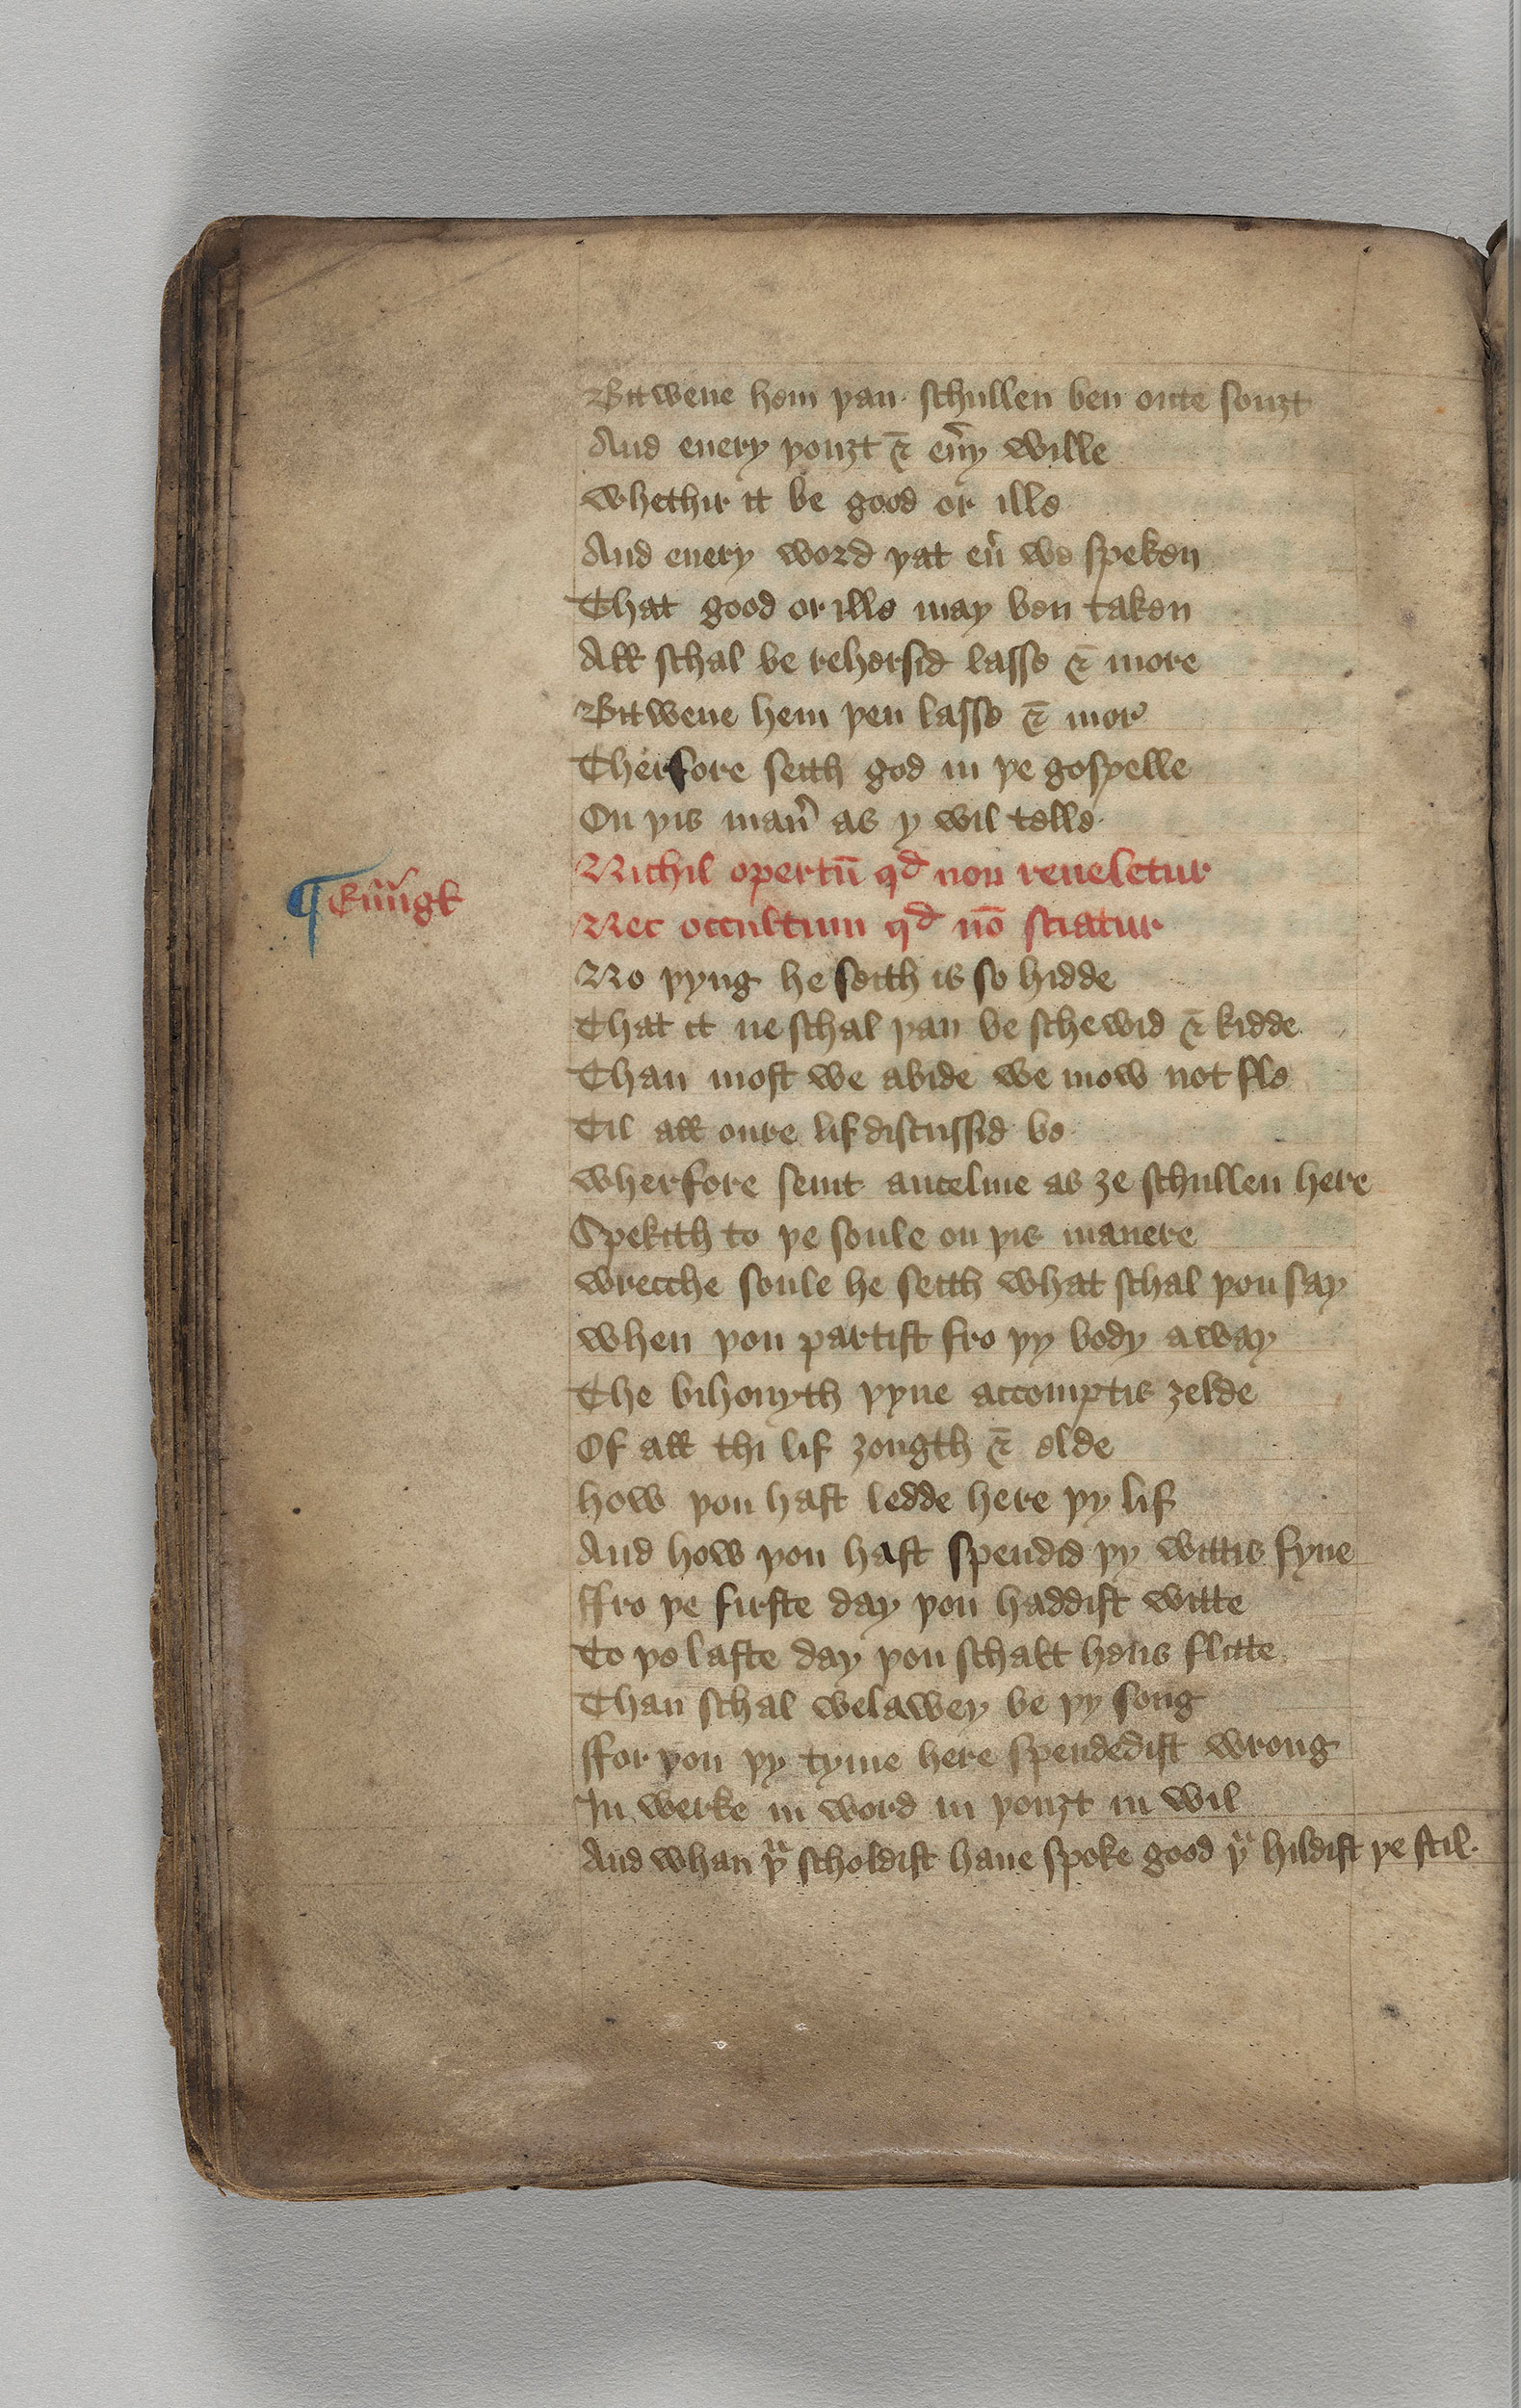 Bitwene hem þan schullen ben oute souȝt
And euery þouȝt & eu̾y wille
whethir it be good or ille
And euery word þat eu̾ we speken
That good or ille may ben taken
All schal be rehersid lasse & more
Bitwene hem þen lasse & mor̾
Therfore seith god in þe gospelle
On þis man̾ as y wil telle
Nichil opertū qd non reueletur
¶ Eu̾ngl
Nec occultum qd nō sciatur
No þyng he seith is so hidde
That it ne schal þan be schewid & kidde
Than most we abide we mow not fle
Til all oure lif discussid be
wherfore seint ancelme as ȝe schullen here
Spekith to þe soule on þis manere
wrecche soule he seith what schal þou say
when þou partist fro þy body away
The bihouyth þyne accomptis ȝelde
Of all thi lif ȝougth & olde
how þou hast ledde here þy lif
And how þou hast spendid þy wittis fyue
ffro þe firste day þou haddist witte
To þe laste day þou schalt hens flitte
Than schal welawey be þy song
ffor þou þy tyme here spendedist wrong
In werke in word in þouȝt in wil
And whan þͧ scholdist haue spoke good þͧ hildist þe stil